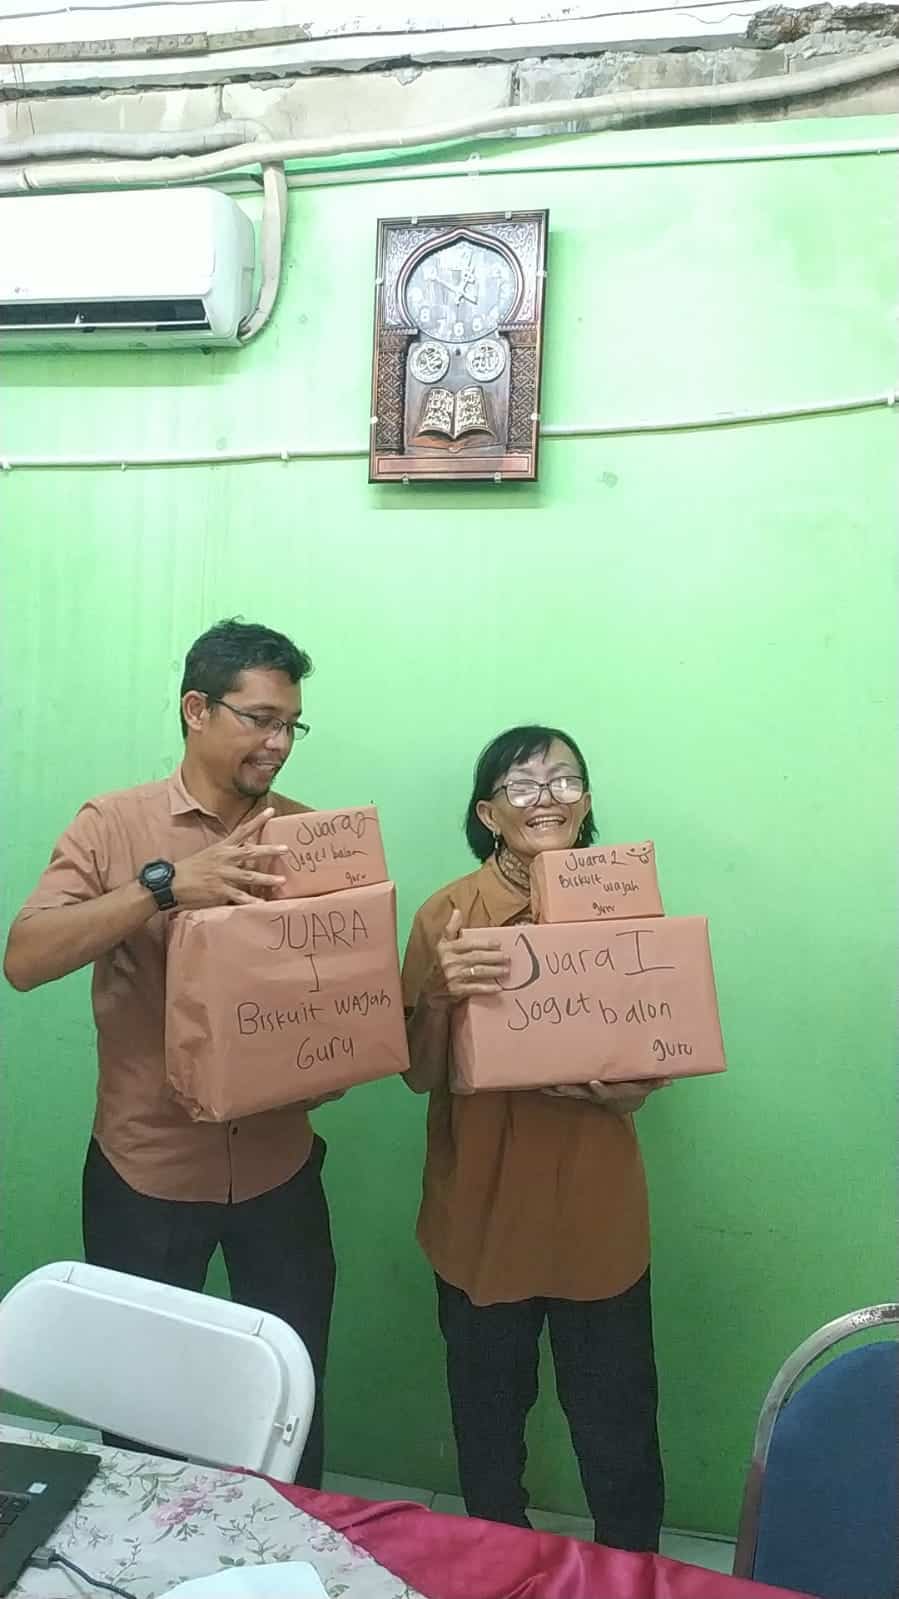 Juara 2
Joget balon
guru
JUARA
I
Biskuit WAJah
Guru
Juara 2
Biskuit wajah
guru
Juara I
Joget balon
guru
8 7 6 5 4